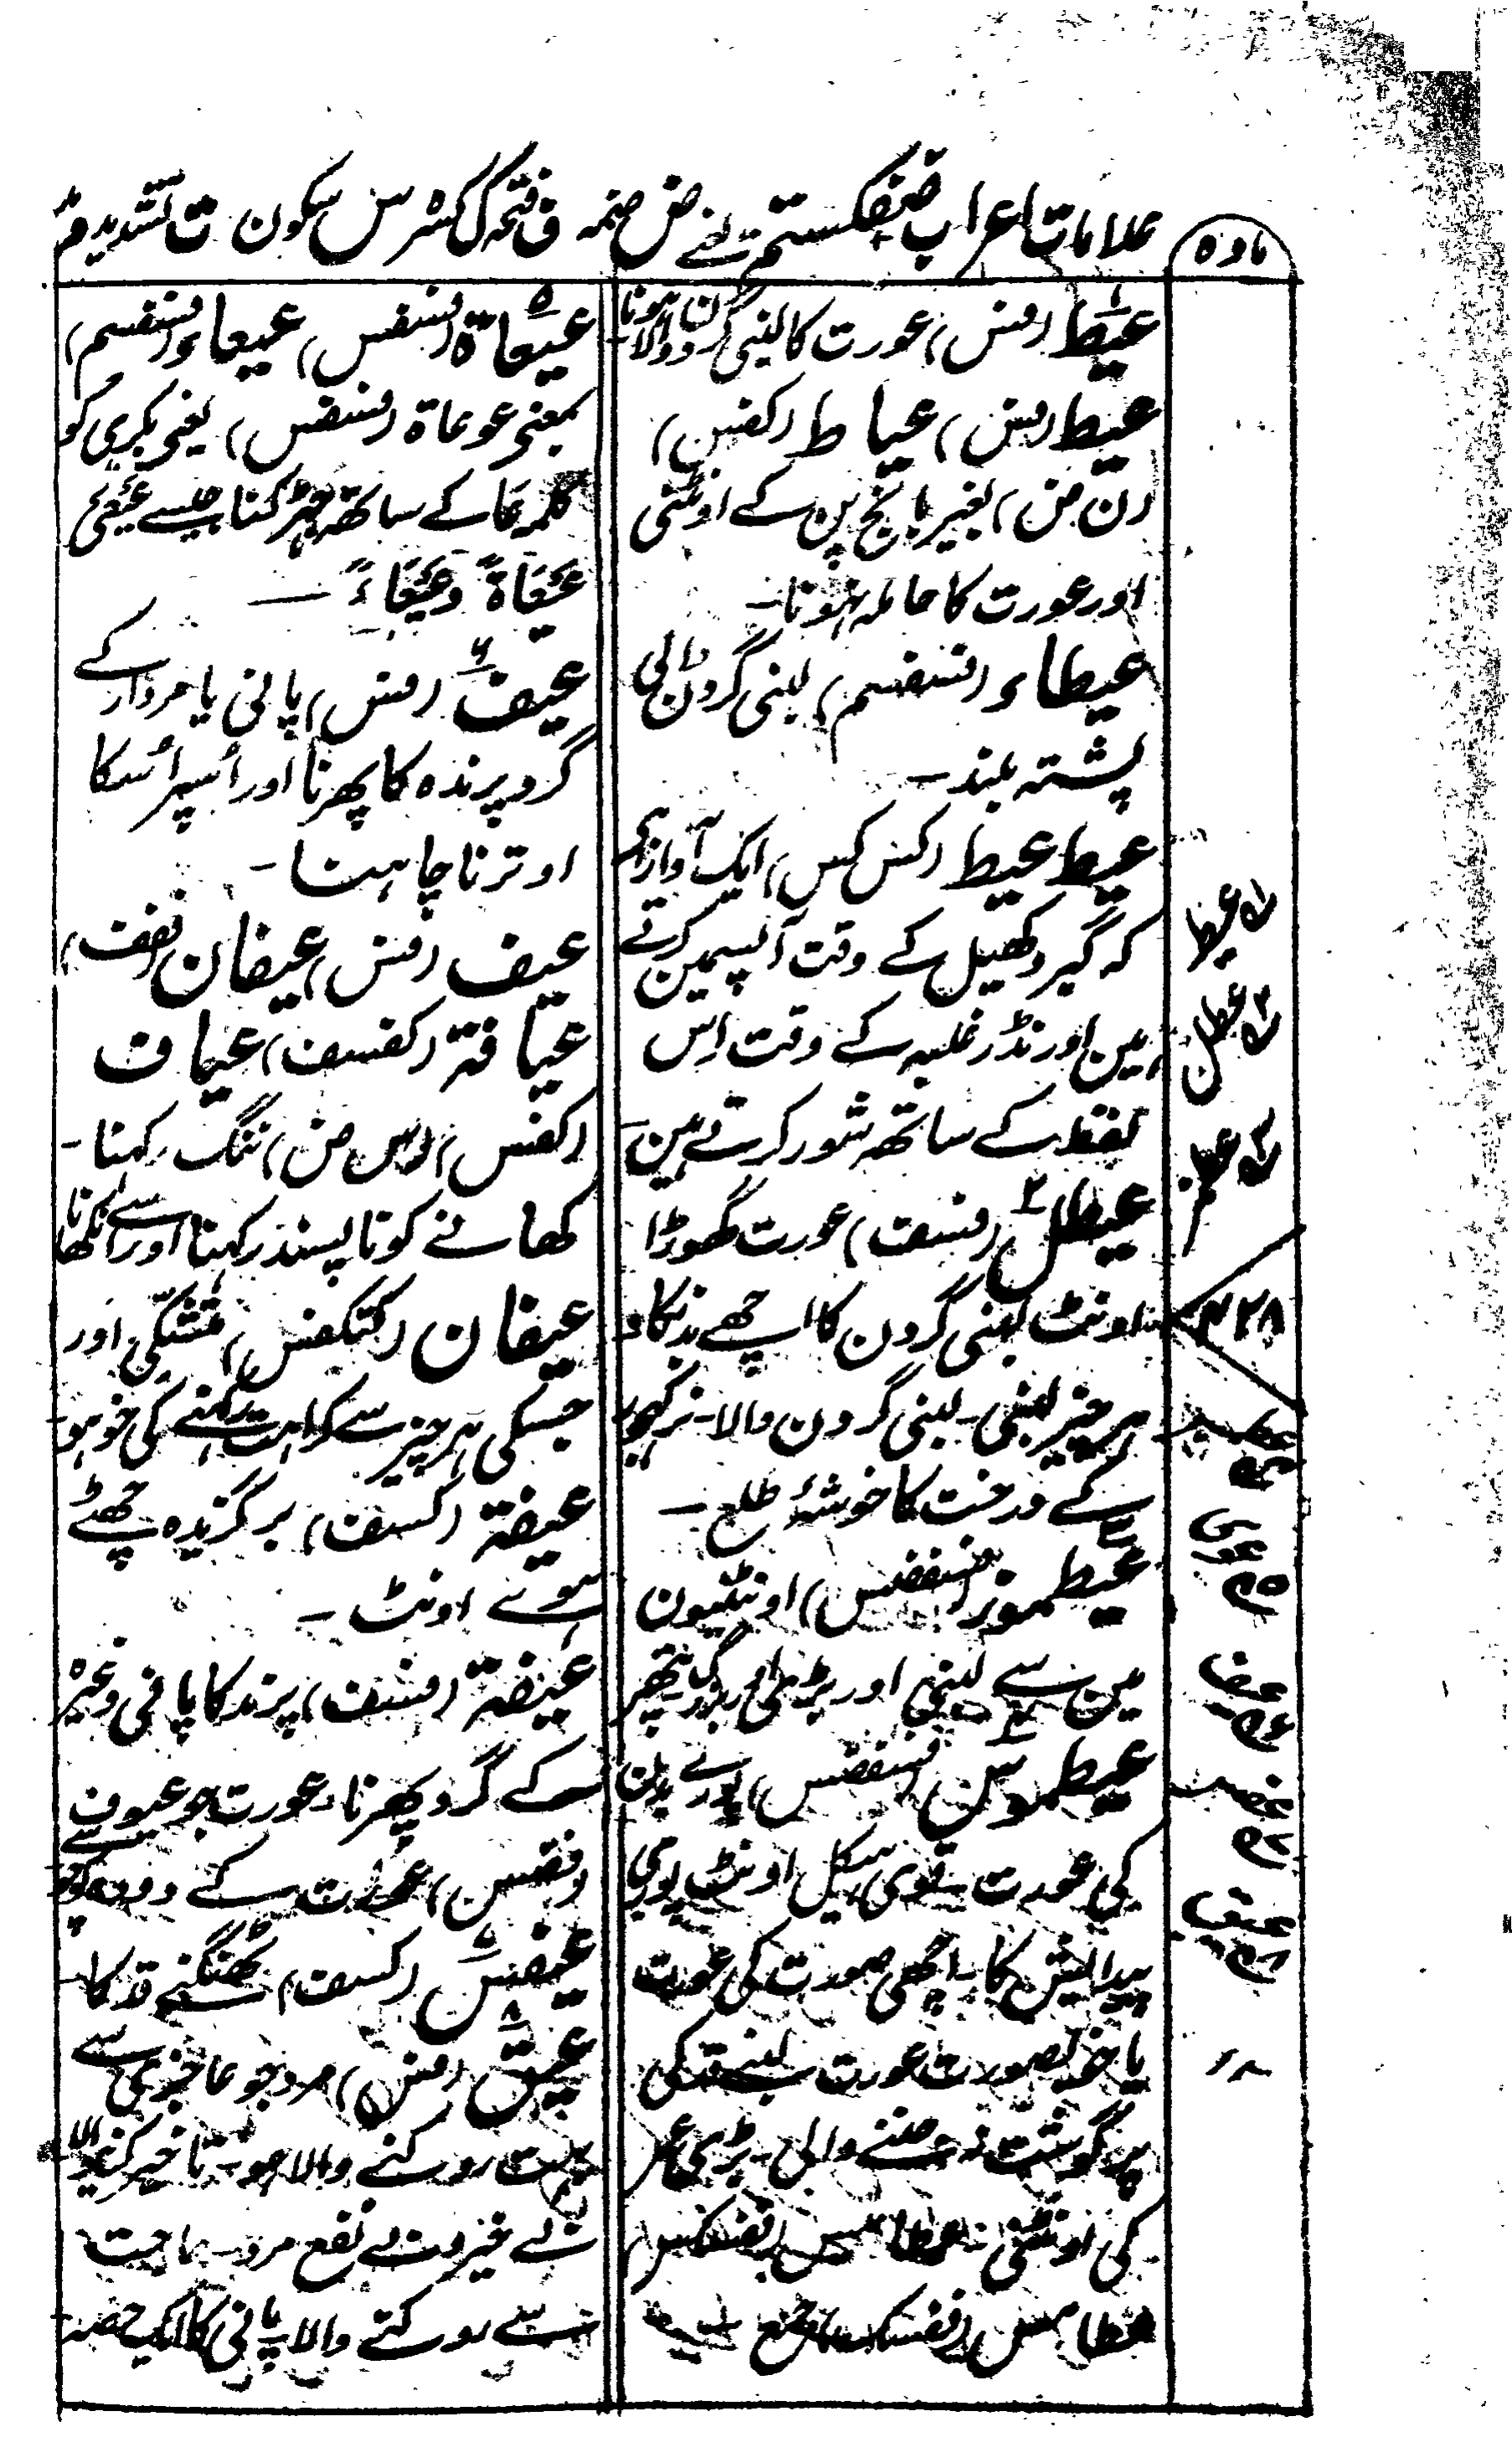 مادہ
علامات اعراب ضفکستم یعنے ض ضمہ ف فتحہ ک کسرہ س سکون ت تشدید م مد
عیط (فس) عورت کا لنبی گردن والا ہونا۔
عیط (فس) عیاط (کفس)
(ن ض) بغیر بانجھ پن کے اونٹنی
اور عورت کا حاملہ نہونا۔
عیطاء (فسفسم) لنبی گردن والی
پشتہ بلند۔
عیط عیط (کس کس) ایک آواز ہے
کہ گبرو کھیل کے وقت آپسمین کرتے
ہین اور نڈر غلبہ کے وقت اِس
لفظ کے ساتھ شور کرتے ہین۔
عیطل (فسفت) عورت گھوڑا
اونٹ لنبی گردن کا اچھے بدنکا و
ہر چیز لنبی۔ لنبی گردن والا۔ نر کھجور
کے درخت کا خوشۂ طلع۔
عیطموز (فسفضس) اونٹنیون
مین سے لنبی اور بڑی بزرگ پتھر
عیطموس (فسفضس) پورے بدن
کی عورت۔ قوی ہیکل اونٹ پوری
پیدایش کا۔ اچھی صورت کی عورت
یا خوبصورت عورت لنبے قد کی
پر گوشت نہ جننے والی۔ بڑی عمر
کی اونٹنی۔ عطامیس (فضکس)
عطامس جمع
عیعاۃ (فسفس) عیعاء (فسفسم)
بمعنی عوعاۃ (فسفس) یعنی بکری کو
کلمہ عا کے ساتھ جھڑکنا جیسے عَیْعَیٰ
عَیْعَاۃً وَعَیْعَاءً۔
عیف (فس) پانی یا مردار کے
گرد پرندہ کا پھرنا اور اُسپر اُسکا
اوترنا چاہنا۔
عیف (فس) عیفان (ففت)
عیافۃ (کفسف) عیاف
(کفس) (س ض) ننگ رکہنا۔
کھانے کو ناپسند رکہنا اور اُسے نکھانا
عیفان (کتکفس) متشکّی اور
جسکی ہر چیز سے کراہت رکہنے کی خو ہو۔
عیفۃ (کسف) برگزیدہ چھٹے
ہوئے اونٹ۔
عیفۃ (فسف) پرند کا پانی وغیرہ
کے گرد پھرنا۔ عورت جو عیوف
(فضس) عورت کے دودہ
عیفس (کسف) ٹھنگنے قد کا۔
عیق (فس) مرد جو عاجزی سے
بہت روکنے والا ہو۔ تاخیر کرنیوالا
بے خیر و بے نفع مرد۔ حاجت
سے روکنے والا۔ پانی کا ایک حصہ۔
عیط
عیطل
۴۲۸
عیف
عیفس
عیق